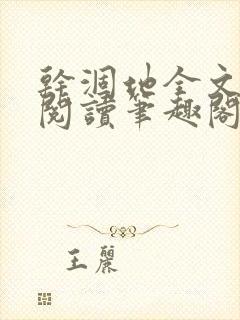 幹涸地全文
閱讀筆趣閣
王麗